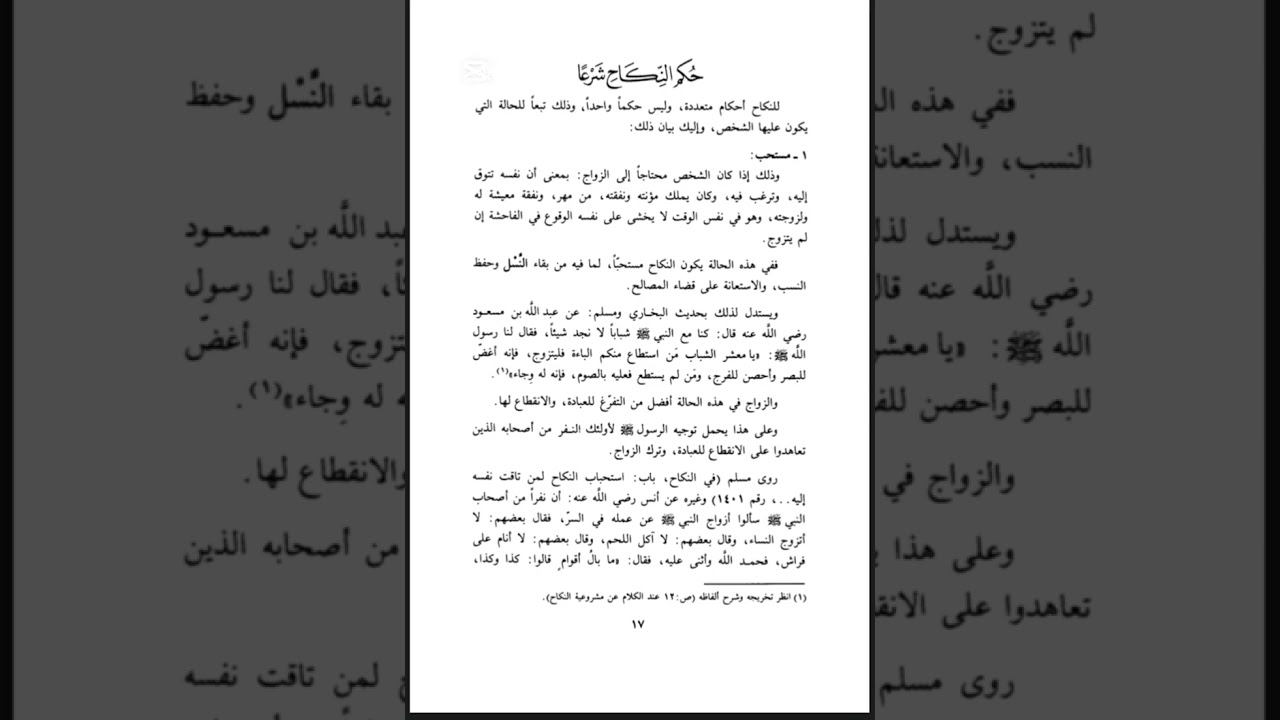 حُكم النِّكَاحِ شَرْعًا
للنكاح أحكام متعددة، وليس حكماً واحداً، وذلك تبعاً للحالة التي
يكون عليها الشخص، وإليك بيان ذلك:
١ ـ مستحب:
وذلك إذا كان الشخص محتاجاً إلى الزواج: بمعنى أن نفسه تتوق
إليه، وترغب فيه، وكان يملك مؤنته ونفقته، من مهر، ونفقة معيشة له
ولزوجته، وهو في نفس الوقت لا يخشى على نفسه الوقوع في الفاحشة إن
لم يتزوج.
ففي هذه الحالة يكون النكاح مستحبّاً، لما فيه من بقاء النَّسْل وحفظ
النسب، والاستعانة على قضاء المصالح.
ويستدل لذلك بحديث البخاري ومسلم: عن عبد اللَّه بن مسعود
رضي اللَّه عنه قال: كنا مع النبي ﷺ شباباً لا نجد شيئاً، فقال لنا رسول
اللَّه ﷺ: «يا معشر الشباب مَن استطاع منكم الباءة فليتزوج، فإنه أغضّ
للبصر وأحصن للفرج، ومَن لم يستطع فعليه بالصوم، فإنه له وِجاء»(١).
والزواج في هذه الحالة أفضل من التفرّغ للعبادة، والانقطاع لها.
وعلى هذا يحمل توجيه الرسول ﷺ لأولئك النفر من أصحابه الذين
تعاهدوا على الانقطاع للعبادة، وترك الزواج.
روى مسلم (في النكاح، باب: استحباب النكاح لمن تاقت نفسه
إليه..، رقم ١٤٠١) وغيره عن أنس رضي اللَّه عنه: أن نفراً من أصحاب
النبي ﷺ سألوا أزواج النبي ﷺ عن عمله في السرّ، فقال بعضهم: لا
أتزوج النساء، وقال بعضهم: لا آكل اللحم، وقال بعضهم: لا أنام على
فراش، فحمد اللَّه وأثنى عليه، فقال: «ما بالُ أقوامٍ قالوا: كذا وكذا،
(١) انظر تخريجه وشرح ألفاظه (ص: ١٢ عند الكلام عن مشروعية النكاح).
١٧